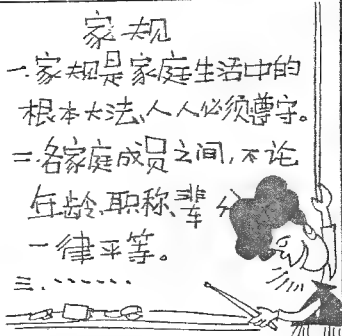 家规
一.家规是家庭生活中的
根本大法,人人必须遵守。
二.各家庭成员之间,不论
年龄、职称、辈分
一律平等。
三.······